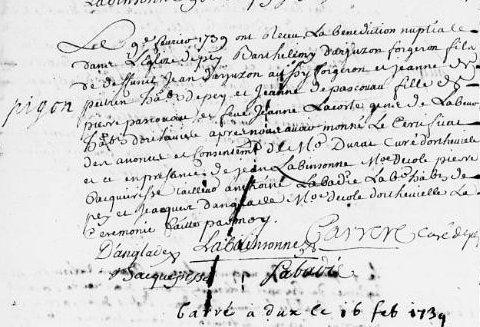 Labainsonne
Le 9e fevrier 1739 ont Recu La benediction nuptiale
dans Leglise de pey Barthelemy darzuzon forgeron fils
de deffunct Jean darzuzon aussy forgeron et Jeanne de
habts de pey et Jeanne de pascouau fille de
pigon
pierre pascouau et feue Jeanne Lacoste gens de Labeur
habts dorthevielle apres nous avoir montré Le Certificat
des anonces et Consentemt de Mr Durac Curé dorthevielle
et ce en presance de Jean Labinsonne Me decole pierre
antoine Labadie habts de
pey et Jacques danglade Me decole dorthevielle La
Ceremonie faitte par moy
Danglade Labainsonne Carrere Curé de pey
Labadie
Carré a dax le 16 feb 1739